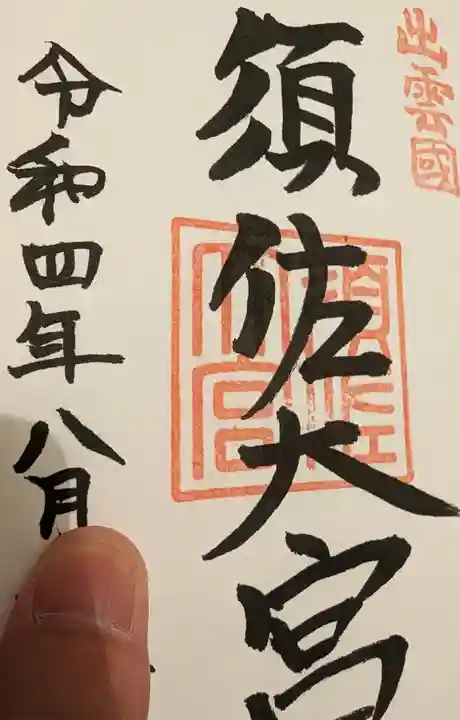 出雲國
須佐大宮
須佐大宮
令和四年八月